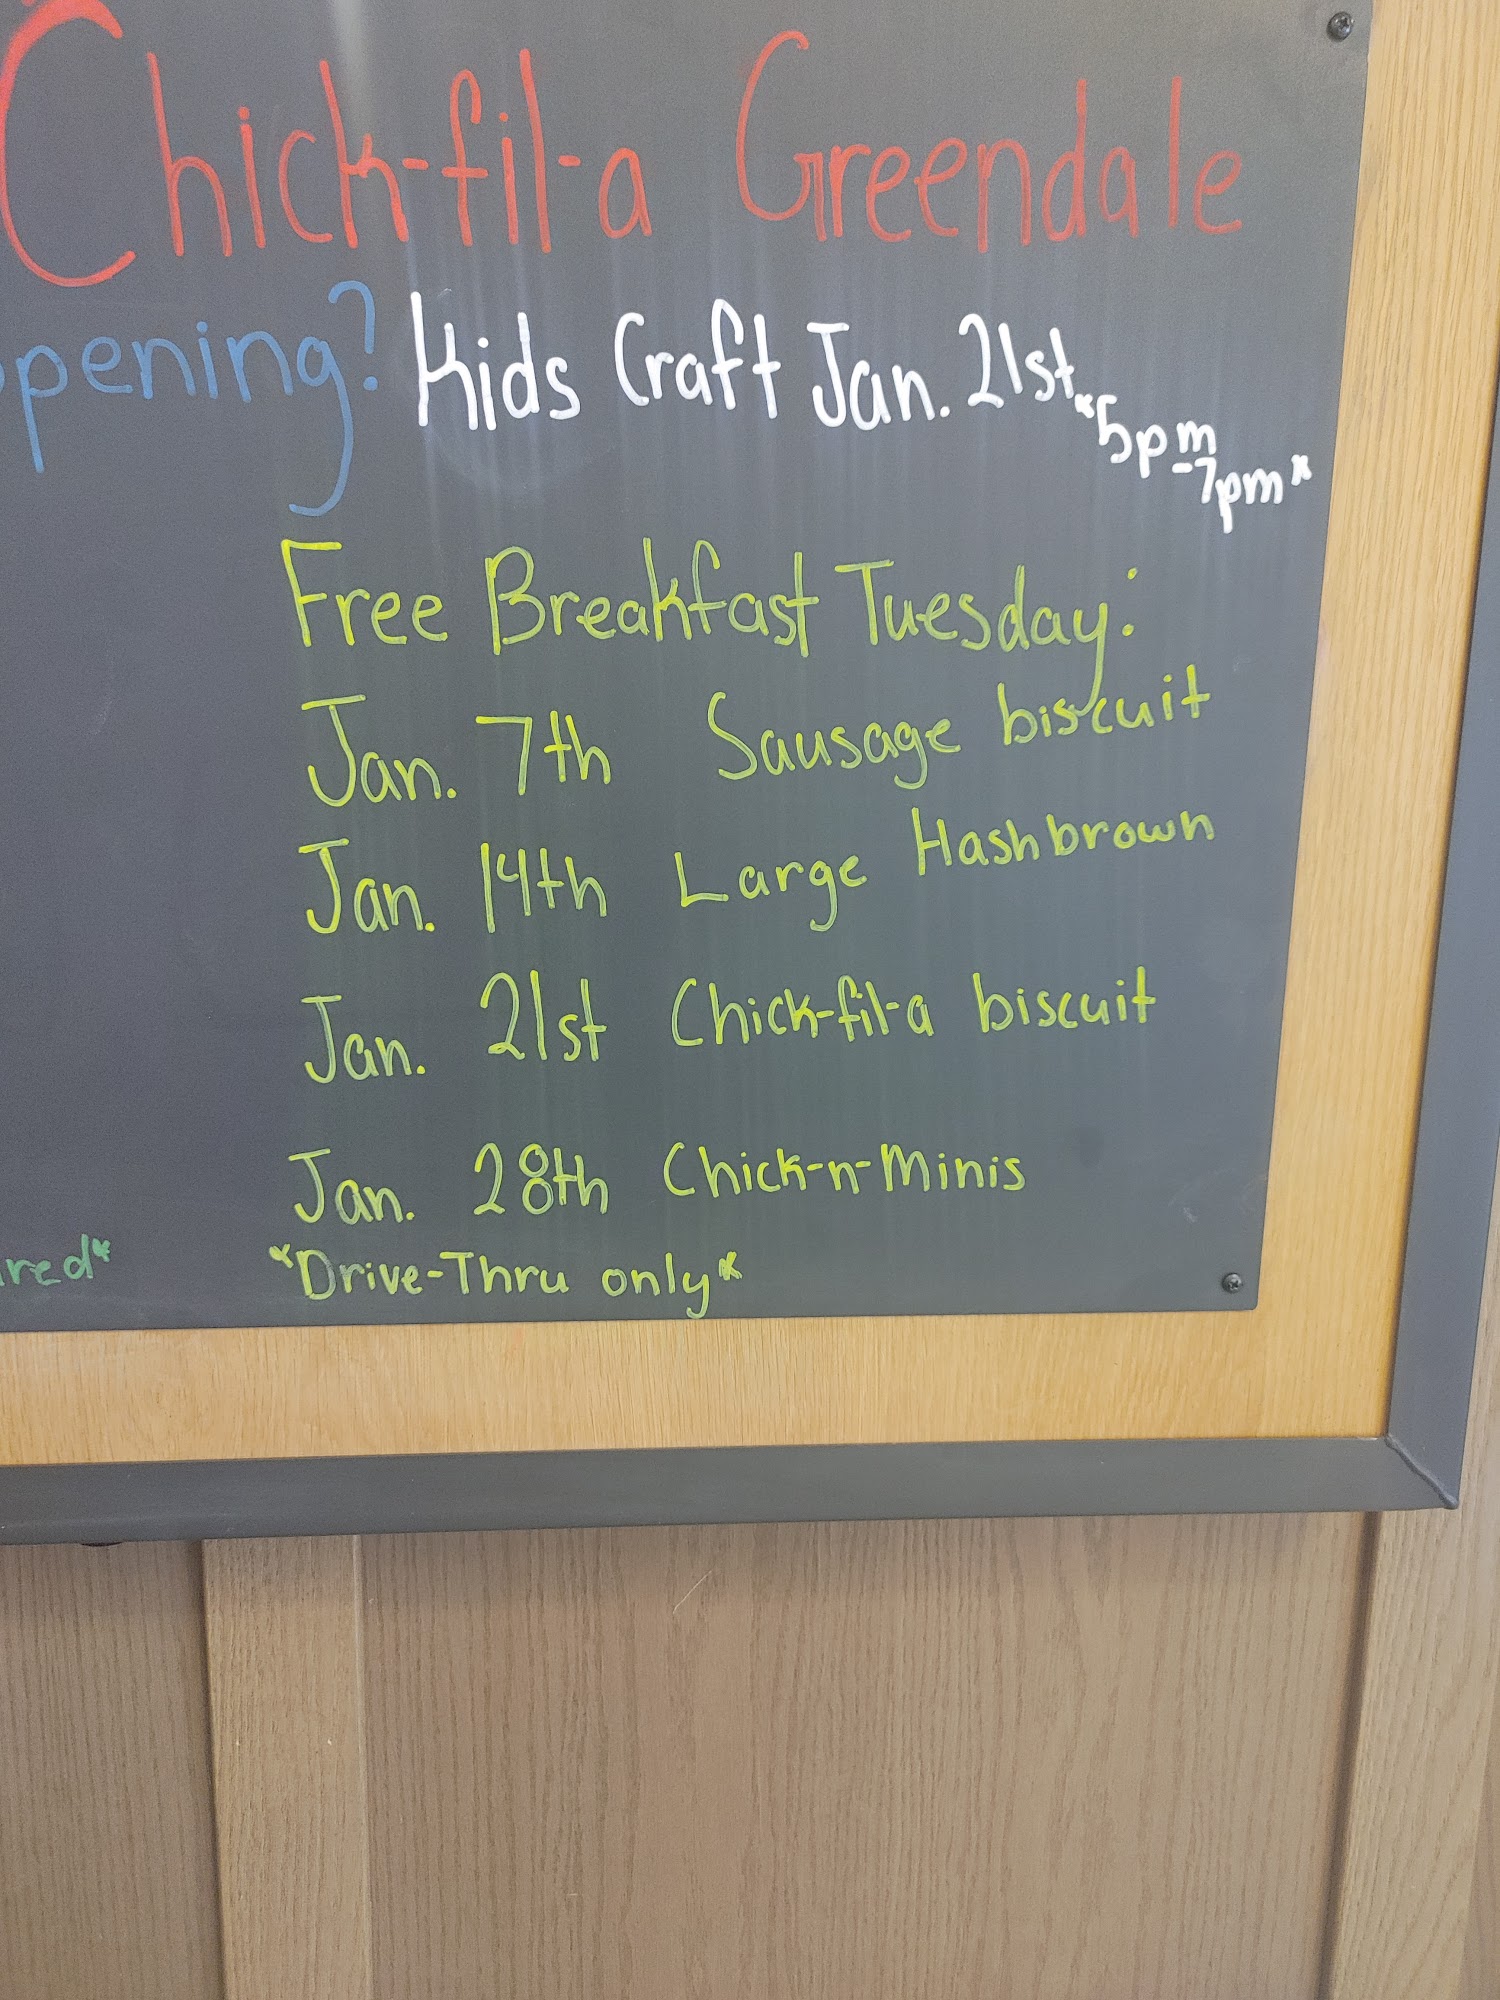 Chick-fil-a Greendale
pening? Kids Craft Jan. 21st *5pm
-7pm*
Free Breakfast Tuesday:
Jan. 7th Sausage biscuit
Jan. 14th Large Hashbrown
Jan. 21st Chick-fil-a biscuit
Jan. 28th Chick-n-Minis
red* *Drive-Thru only*